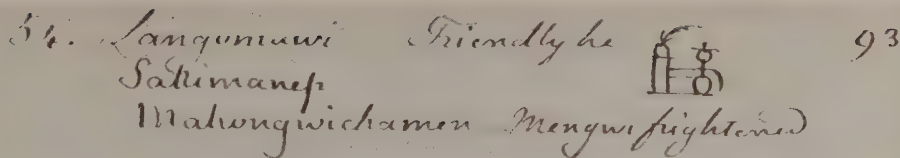 54. Langomuwi Friendly he 93
Sakimanep
Mahongwichamen Mengwi frightened